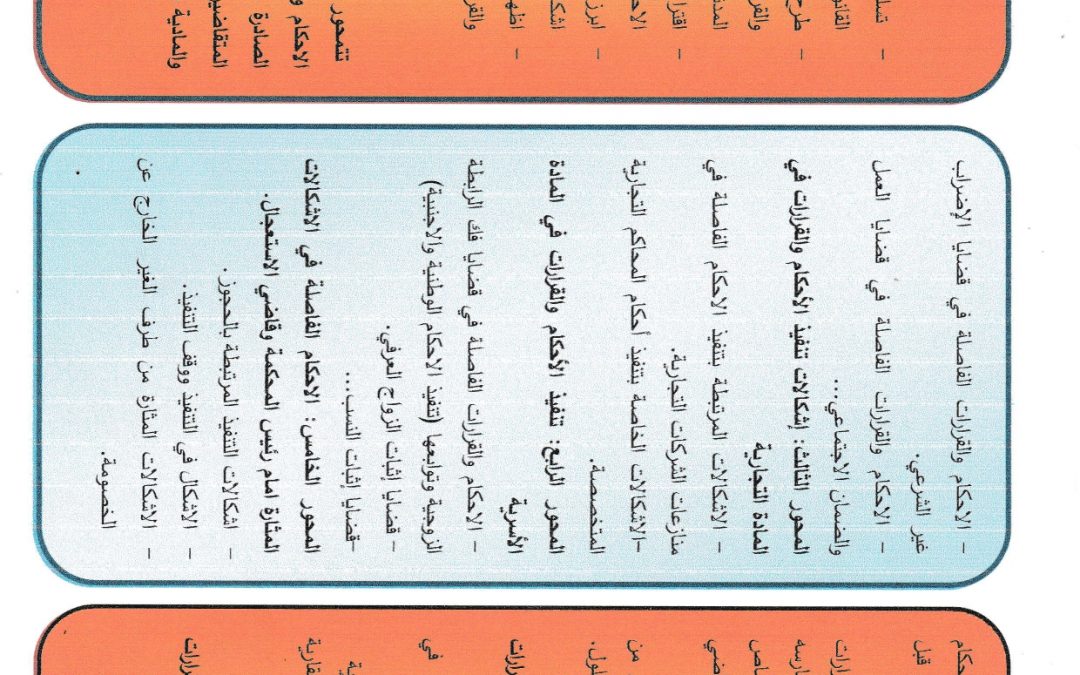 - تسل
القانو
- طرح
والقر
- اقترا
الاح
- ابرز
اشكا
- اظه
والقر
تتمحور
الاحكام و
الصادرة
المتقاضي
والمادية
- الاحكام والقرارات الفاصلة في قضايا الإضراب
غير الشرعي.
- الاحكام والقرارات الفاصلة في قضايا العمل
والضمان الاجتماعي...
المحور الثالث: إشكالات تنفيذ الأحكام والقرارات في
المادة التجارية
- الاشكالات المرتبطة بتنفيذ الاحكام الفاصلة في
منازعات الشركات التجارية.
-الاشكالات الخاصة بتنفيذ أحكام المحاكم التجارية
المتخصصة.
المحور الرابع: تنفيذ الأحكام والقرارات في المادة
الأسرية
- الاحكام والقرارات الفاصلة في قضايا فك الرابطة
الزوجية وتوابعها (تنفيذ الاحكام الوطنية والاجنبية)
- قضايا إثبات الزواج العرفي.
-قضايا إثبات النسب...
المحور الخامس: الاحكام الفاصلة في الاشكالات
المثارة امام رئيس المحكمة وقاضي الاستعجال.
- اشكالات التنفيذ المرتبطة بالحجوز.
- الاشكال في التنفيذ ووقف التنفيذ.
- الاشكالات المثارة من طرف الغير الخارج عن
الخصومة.
حكام
قبل
رارات
ارسه
اص
ضي
من
لول.
رارات
في
ية
قارية
رارات